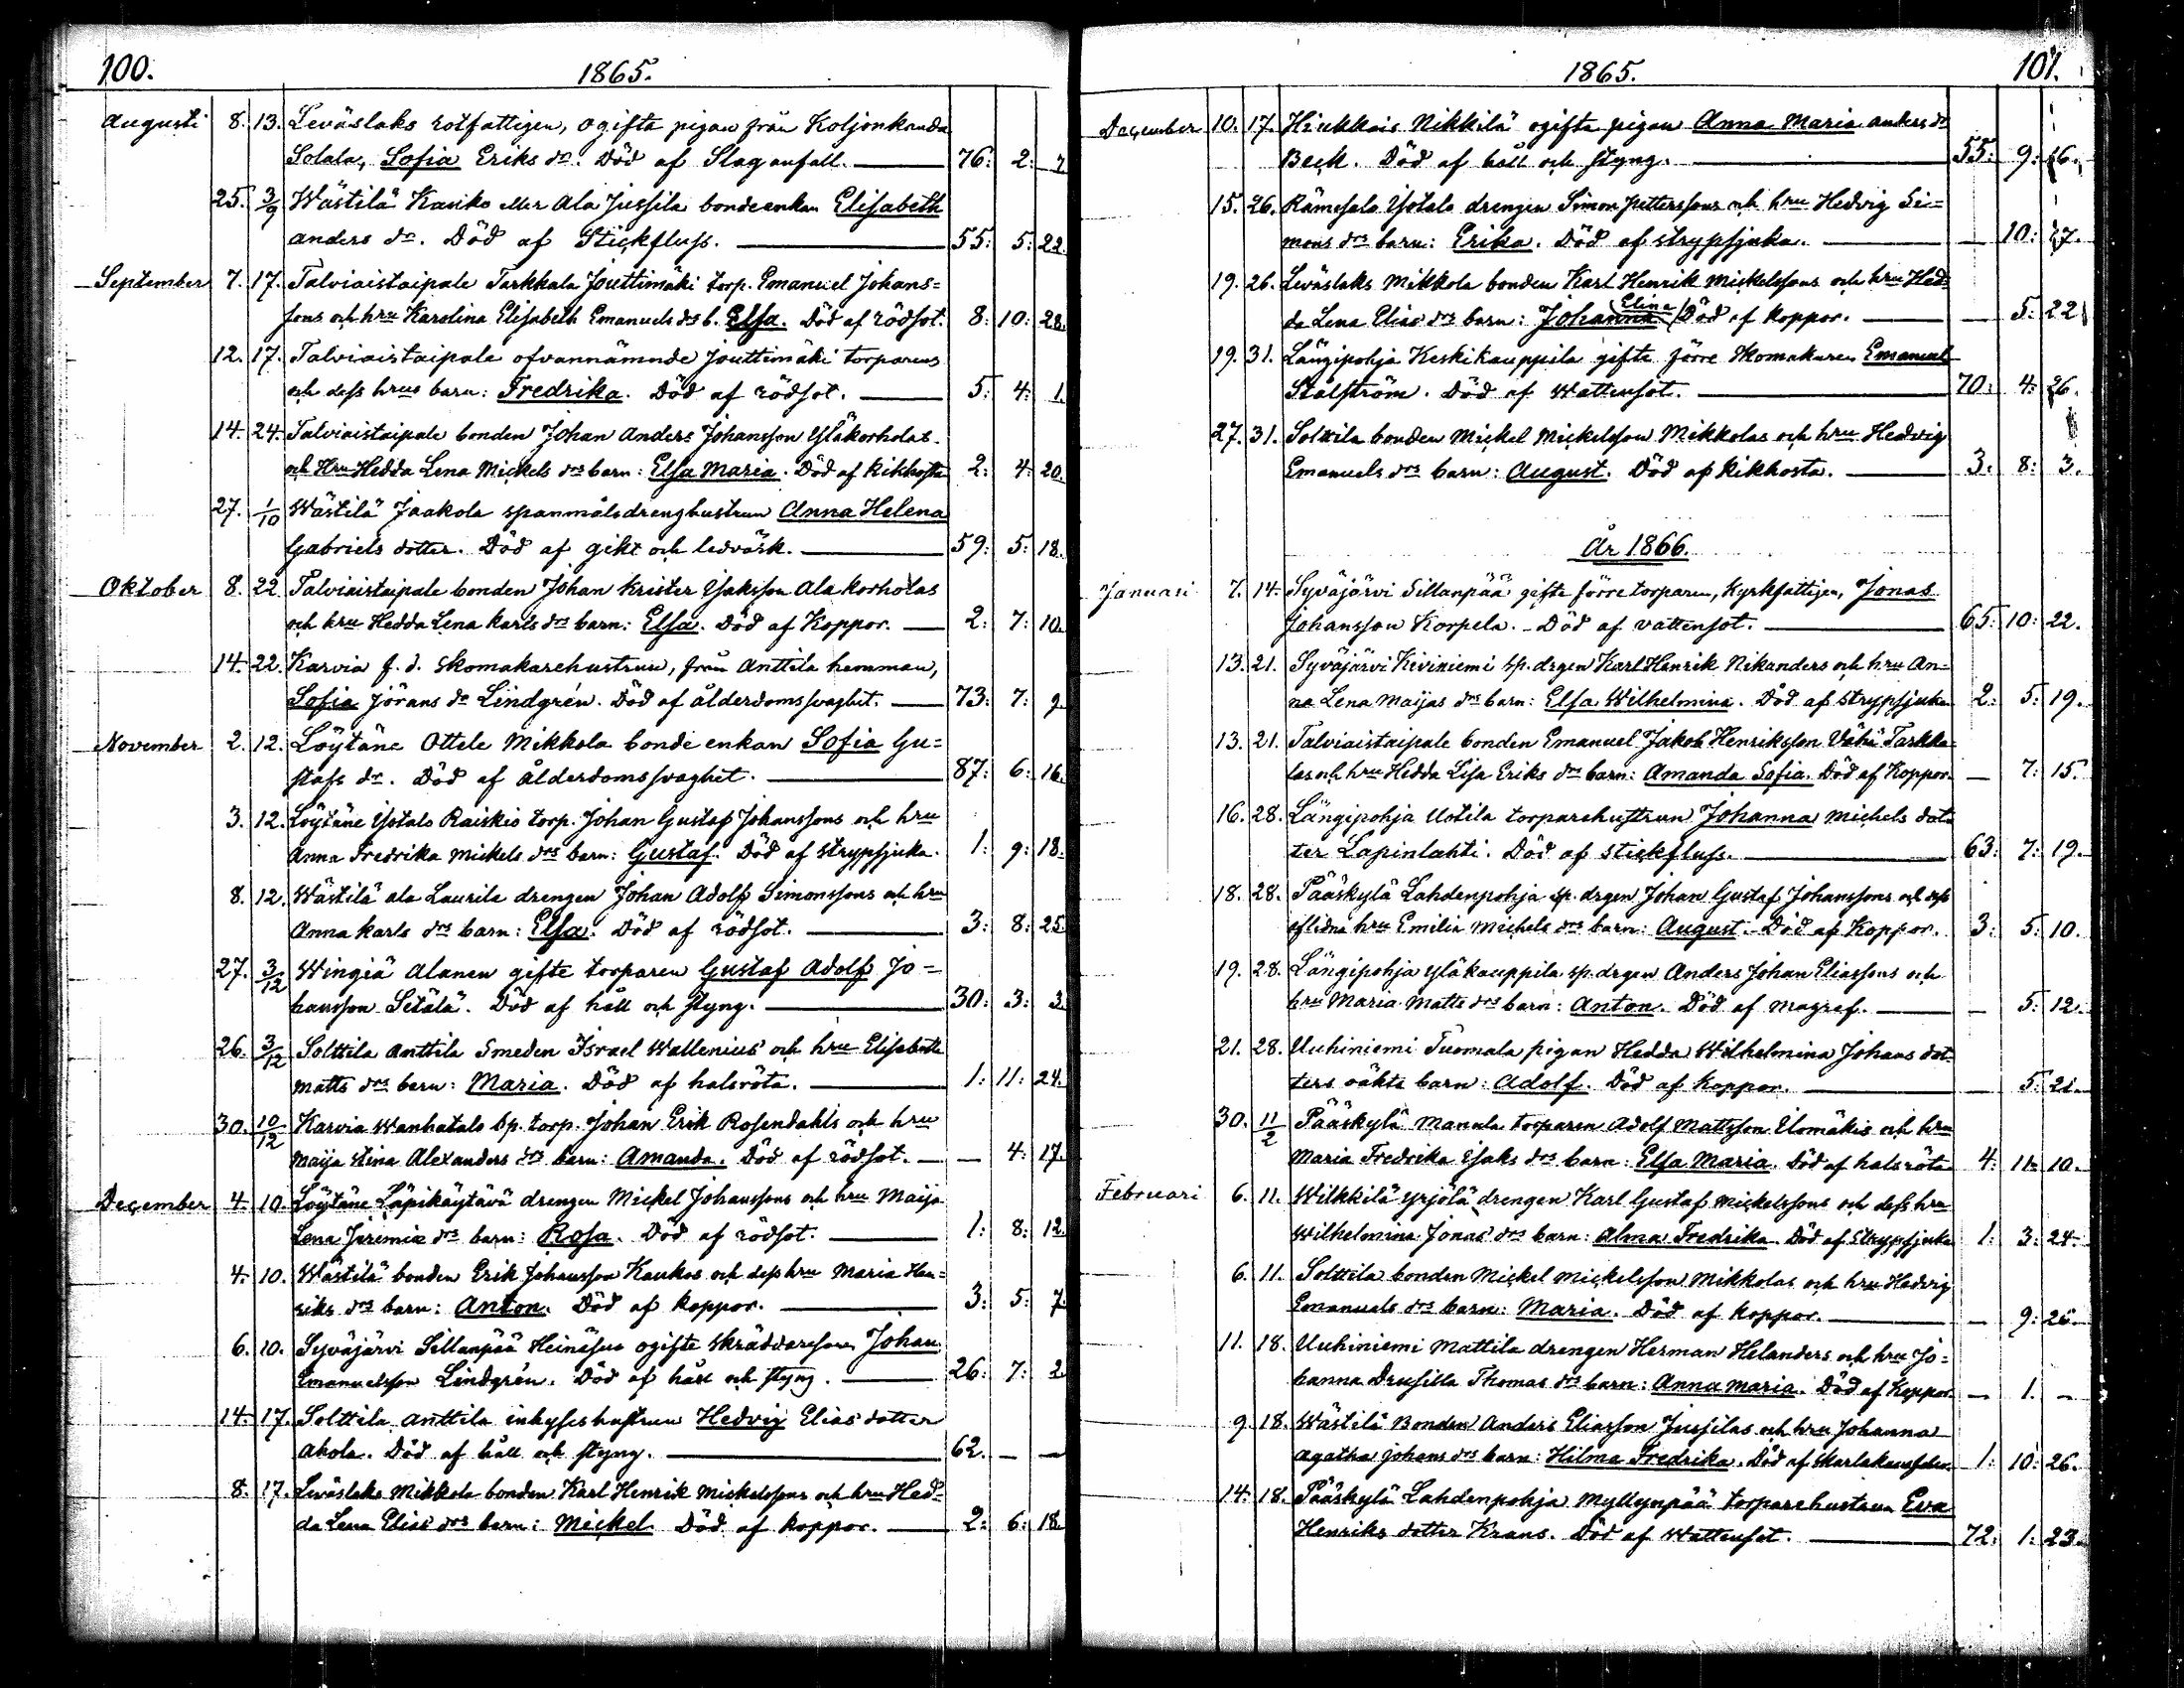 100.
1865.
Augusti 8. 13. Leväslaks rotfattigen, ogifta pigan från Koljonkanda
Solala, Sofia Eriks dr. Död af Slaganfall. 76: 2: 7
25. 3/9 Wästilä Kasiko eller Ala Jussila bondeenkan Elisabeth
Anders dr. Död af Stickfluss. 55: 5: 22.
September 7. 17. Talviaistaipale Tarkkala Jouttimäki torp. Emanuel Johans=
sons och hru Karolina Elisabeth Emanuels drs b. Elsa. Död af rödsot. 8: 10: 28.
12. 17. Talviaistaipale ofvannämnde Jouttimäki torparens
och dess hrus barn: Fredrika. Död af rödsot. 5: 4: 1.
14. 24. Talviaistaipale bonden Johan Anders Johansson Yläkorholas
och Hru Hedda Lena Mickels drs barn: Elsa Maria. Död af kikhosta 2: 4: 20.
27. 1/10 Wästilä Jaakola spanmålsdrenghustrun Anna Helena
Gabriels dotter. Död af gikt och ledvärk. 59: 5: 18.
Oktober 8. 22 Talviaistaipale bonden Johan Krister Isaksson Ala Korholas
och hru Hedda Lena Karls drs barn: Elsa. Död af Koppor. 2: 7: 10.
14. 22. Karvia f. d. Skomakarehustrun, från Anttila hemman,
Sofia Jörans dr Lindgrén. Död af ålderdomssvaghet. 73: 7: 9
November 2. 12. Löytäne Ottele Mikkola bonde enkan Sofia Gu=
stafs dr. Död af ålderdomssvaghet. 87: 6: 16.
3. 12. Löytäne Yotalo Raiskio torp. Johan Gustaf Johanssons och hru
Anna Fredrika Mickels drs barn: Gustaf. Död af strypsjuka. 1: 9: 18.
8. 12. Wästilä ala Laurila drengen Johan Adolf Simonssons och hru
Anna Karls drs barn: Elsa. Död af rödsot. 3: 8: 25.
27. 3/12 Wingiä Alanen gifte torparen Gustaf Adolf Jo=
hansson Setälä. Död af håll och styng. 30: 3: 3.
26. 3/12 Solttila Anttila Smeden Israel Wallenius och hru Elisabeth
Matts drs barn: Maria. Död af halsröta. 1: 11: 24.
30. 10/12 Karvia Wanhatalo bp. torp. Johan Erik Rosendahls och hru
Maija Stina Alexanders drs barn: Amanda. Död af rödsot. — 4: 17.
December 4. 10. Löytäne Läpikäytävä drengen Mickel Johanssons och hru Maija
Lena Jeremiæ drs barn: Rosa. Död af rödsot. 1: 8: 12.
4. 10. Wästilä bonden Erik Johansson Kaukos och dess hru Maria Hen=
riks drs barn: Anton. Död af koppor. 3: 5: 7.
6. 10. Syväjärvi Sillanpää Heinäsuo ogifte skräddaresonen Johan
Emanuelsson Lindgrén. Död af håll och styng. 26: 7: 2
14. 17. Solttila Anttila inhyseshustrun Hedvig Elias dotter
Ahola. Död af håll och styng. 62. — —
8. 17. Leväslaks Mikkola bonden Karl Henrik Mickelssons och hru Hed=
da Lena Elias drs barn: Mickel. Död af koppor. 2: 6: 18.
1865.
101.
December 10. 17. Hiukkais Nikkilä ogifta pigan Anna Maria Anders dr
Beck. Död af håll och styng. 55: 9: 16.
15. 26. Rämesalo Yotalo drengen Simon Petterssons och hru Hedvig Si=
mons drs barn: Erika. Död af strypsjuka. — 10: 27.
19. 26. Leväslaks Mikkola bonden Karl Henrik Mickelssons och hru Hed=
da Lena Elias drs barn: Johanna Elina Död af koppor. — 5: 22
19. 31. Längipohja Keskikauppila gifte förre skomakaren Emanuel
Stålström. Död af Wattensot. 70: 4: 26.
27. 31. Solttila bonden Mickel Mickelsson Mikkolas och hru Hedvig
Emanuels drs barn: August. Död af kikhosta. 3. 8: 3.
År 1866.
Januari 7. 14. Syväjärvi Sillanpää gifte förre torparen, Kyrkfattigen, Jonas
Johansson Korpela. Död af vattensot. 65: 10: 22.
13. 21. Syväjärvi Kiviniemi sp. drgen Karl Henrik Nikanders och hru An=
na Lena Maijas drs barn: Elsa Wilhelmina. Död af strypsjuka 2: 5: 19.
13. 21. Talviaistaipale bonden Emanuel Jakob Henriksson Vähä Tarkka=
las och hru Hedda Lisa Eriks drs barn: Amanda Sofia. Död af Koppor. — 7: 15.
16. 28. Längipohja Uotila torparehustrun Johanna Michels dot=
ter Lapinlahti. Död af stickfluss. 63: 7: 19.
18. 28. Pääskylä Lahdenpohja sp. drgen Johan Gustaf Johanssons och dess
aflidna hru Emilia Michels drs barn: August. Död af Koppor. 3: 5: 10.
19. 28. Längipohja Yläkauppila sp. drgen Anders Johan Eliassons och
hru Maria Matts drs barn: Anton. Död af magref. — 5: 12.
21. 28. Uuhiniemi Tuomala pigan Hedda Wilhelmina Johans dot=
ters oäkta barn: Adolf. Död af Koppor. 5: 21.
30. 11/2 Pääskylä Mannla torparen Adolf Mattsson Elomäkis och hru
Maria Fredrika Isaks drs barn: Elsa Maria. Död af halsröta 4: 11: 10.
Februari 6. 11. Wilkkilä Yrjölä drengen Karl Gustaf Mickelssons och dess hru
Wilhelmina Jonas drs barn: Alma Fredrika. Död af Strypsjuka 1: 3: 24.
6. 11. Solttila bonden Mickel Mickelsson Mikkolas och hru Hedvig
Emanuels drs barn: Maria. Död af koppor. — 9: 26.
11. 18. Uuhiniemi Mattila drengen Herman Helanders och hru Jo=
hanna Drusilla Thomas drs barn: Anna Maria. Död af Koppor. — 1. —
9. 18. Wästilä Bonden Anders Eliasson Jussilas och hru Johanna
Agatha Johans drs barn: Hilma Fredrika. Död af skarlakansfeber. 1: 10: 26.
14. 18. Pääskylä Lahdenpohja Myllynpää torparehustrun Eva
Henriks dotter Krans. Död af Wattensot. 72: 1: 23.